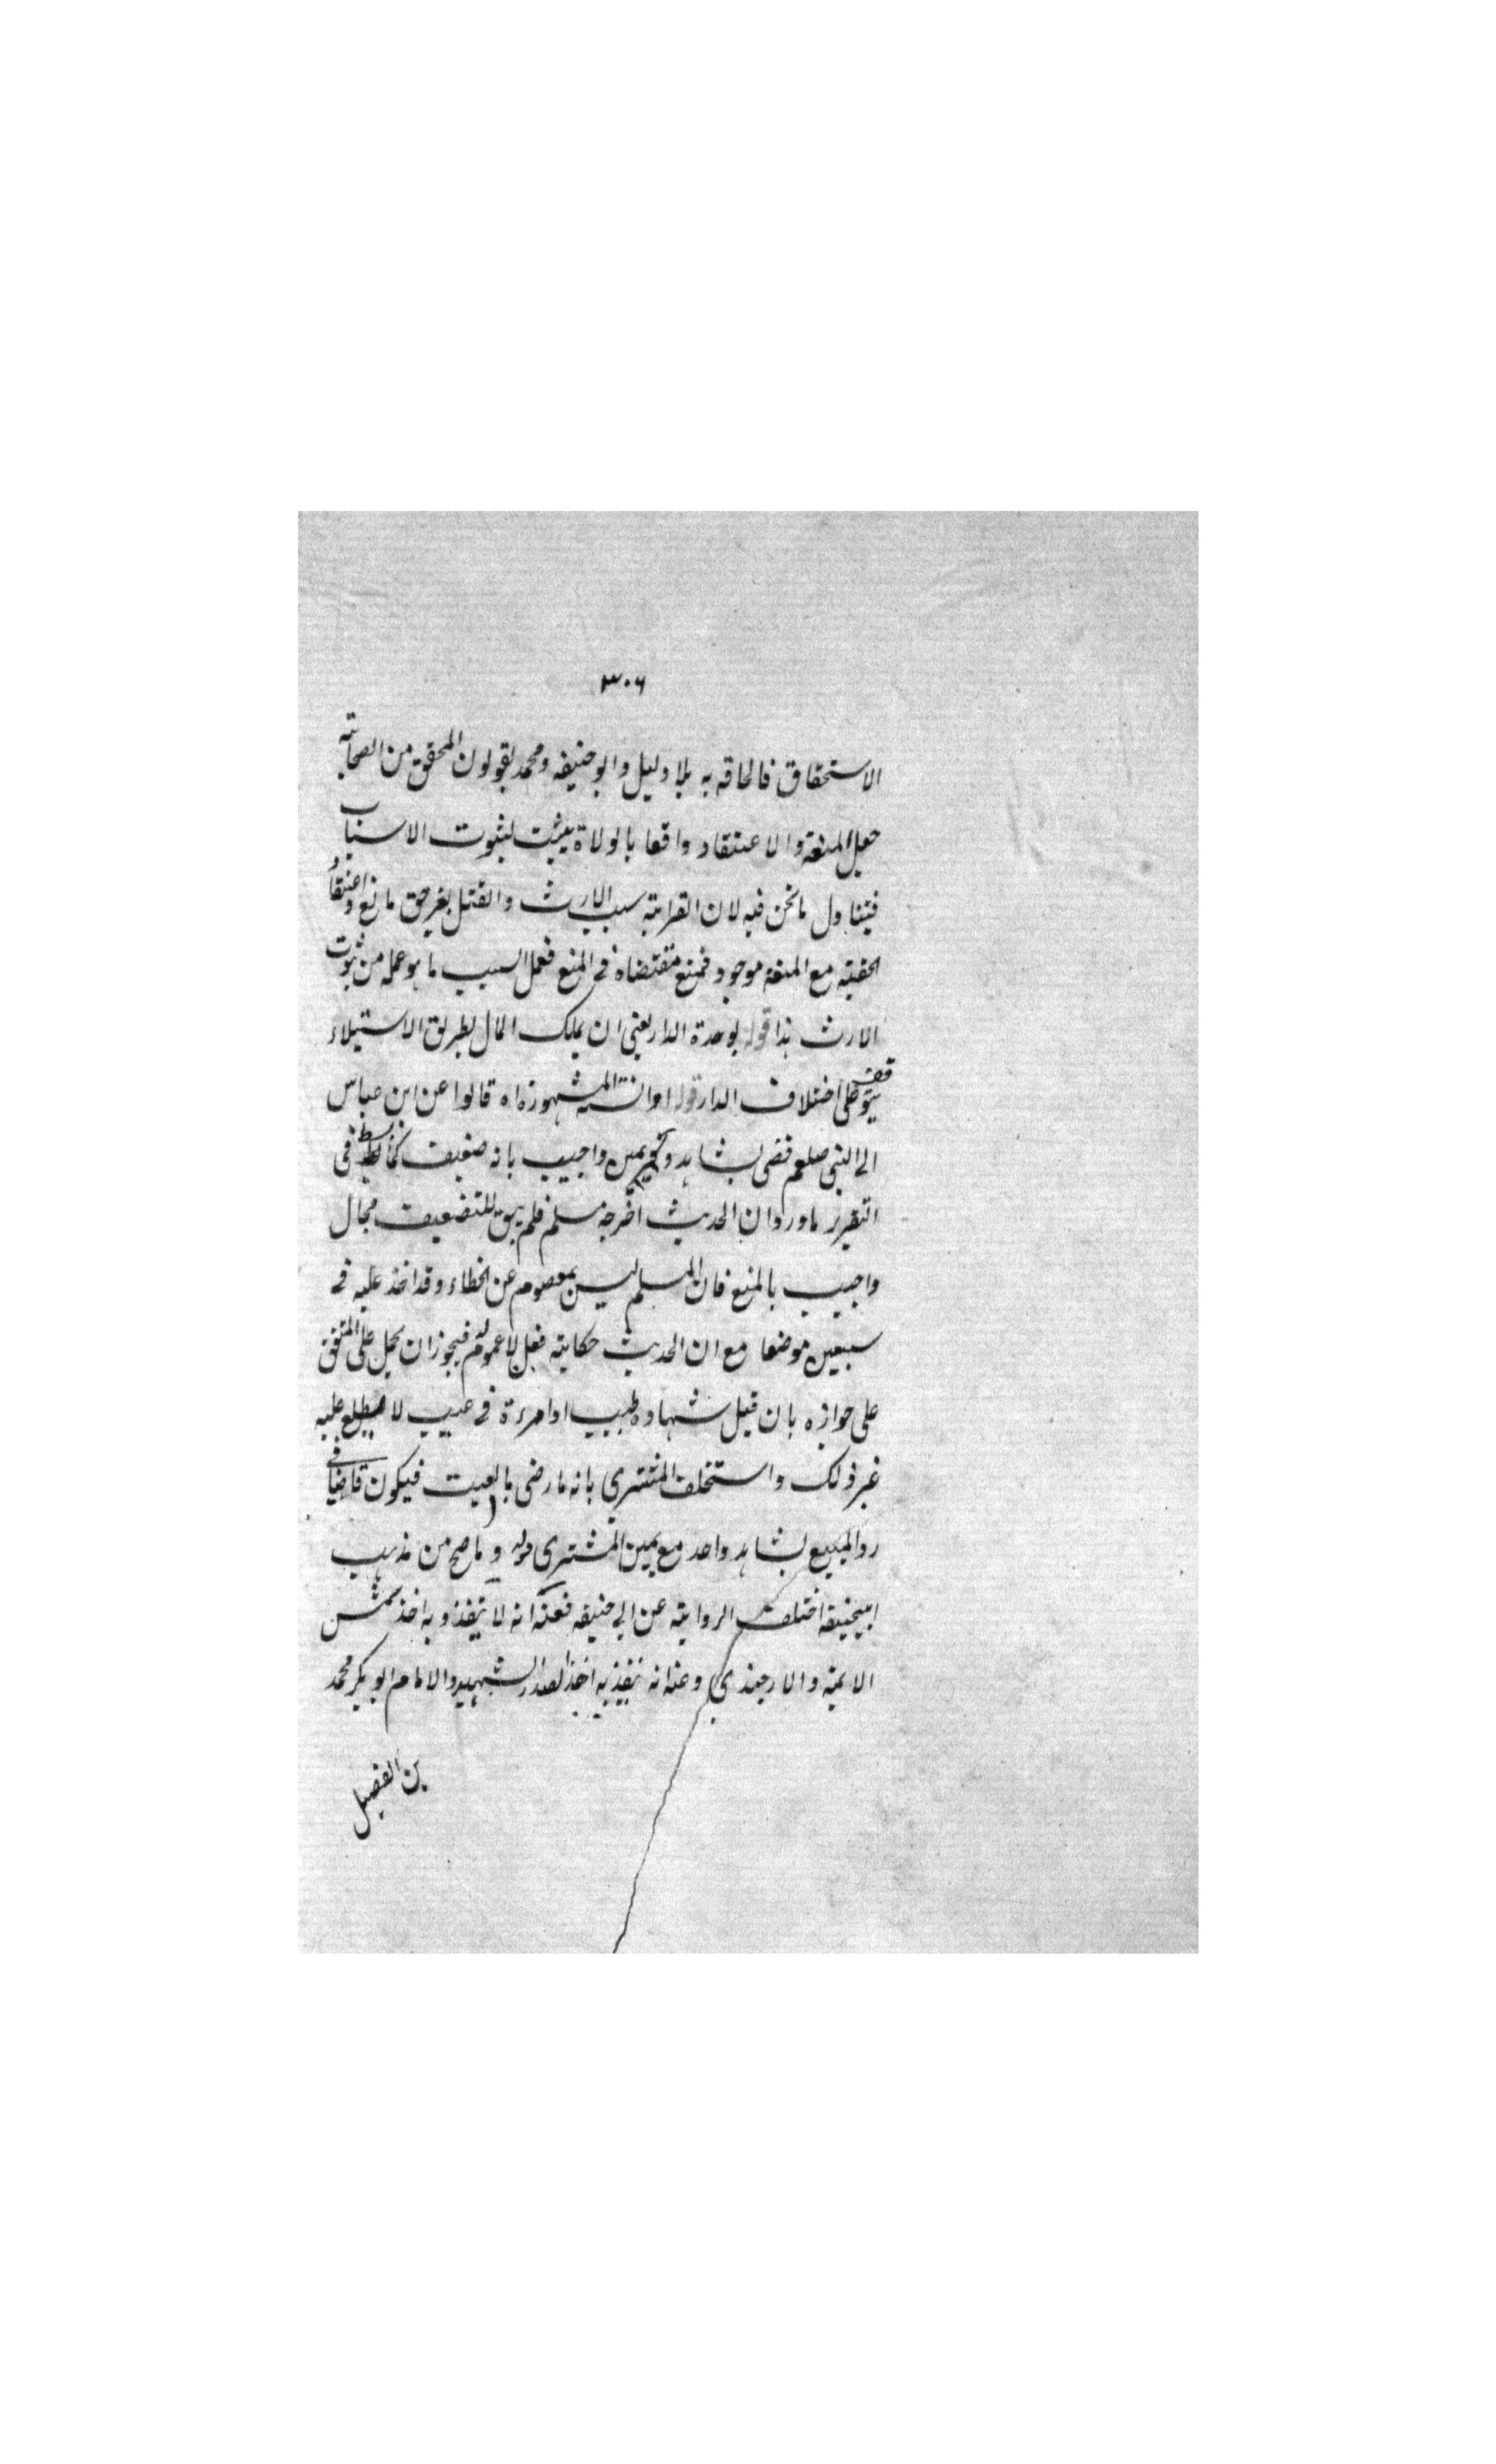 ٣٠٦
الاستحقاق فالحاقه به بلا دليل وابو حنيفه ومحمد يقولون المحقق من الصحابة
جعل المنعة والاعتقاد واقعا بالولاة يثبت لثبوت الاسباب
فيتناول ما نحن فيه لان القرابة سبب الارث والقتل بغير حق مانع واعتقاد
الحقية مع المنعة موجود فمنع مقتضاه فى المنع فعمل السبب ما هو عمله من ثبوت
الارث هذا قوله لوحدة الدار يعنى ان يملك المال بطريق الاستيلاء
يتوقف على اختلاف الدار قوله او السنة المشهورة اه قالوا عن ابن عباس
الى النبى صلعم قضى بشاهد ويمين واجيب بانه ضعيف فى
التقرير ما ورد ان الحديث اخرجه مسلم فلم يبق للتضعيف مجال
واجيب بالمنع فان المسلم ليس بمعصوم عن الخطاء وقد اخذ عليه فى
سبعين موضعا مع ان الحديث حكاية فعل لا عموم له فيجوز ان يحمل على المتفق
على جوازه بان قبل شهادة طبيب او امرءة فى عيب لا يطلع عليه
غير ذلك واستحلف المشترى بانه ما رضى بالعيب فيكون قاضيا فى
رد المبيع بشاهد واحد مع يمين المشترى قوله وما صح من مذهب
ابيحنيفة اختلف الرواية عن ابى حنيفه فعنه انه لا ينفذ وبه اخذ شمس
الايمة والاوزجندي وعنه انه ينفذ به اخذ الصدر الشهيد والامام ابو بكر محمد
بن الفضيل